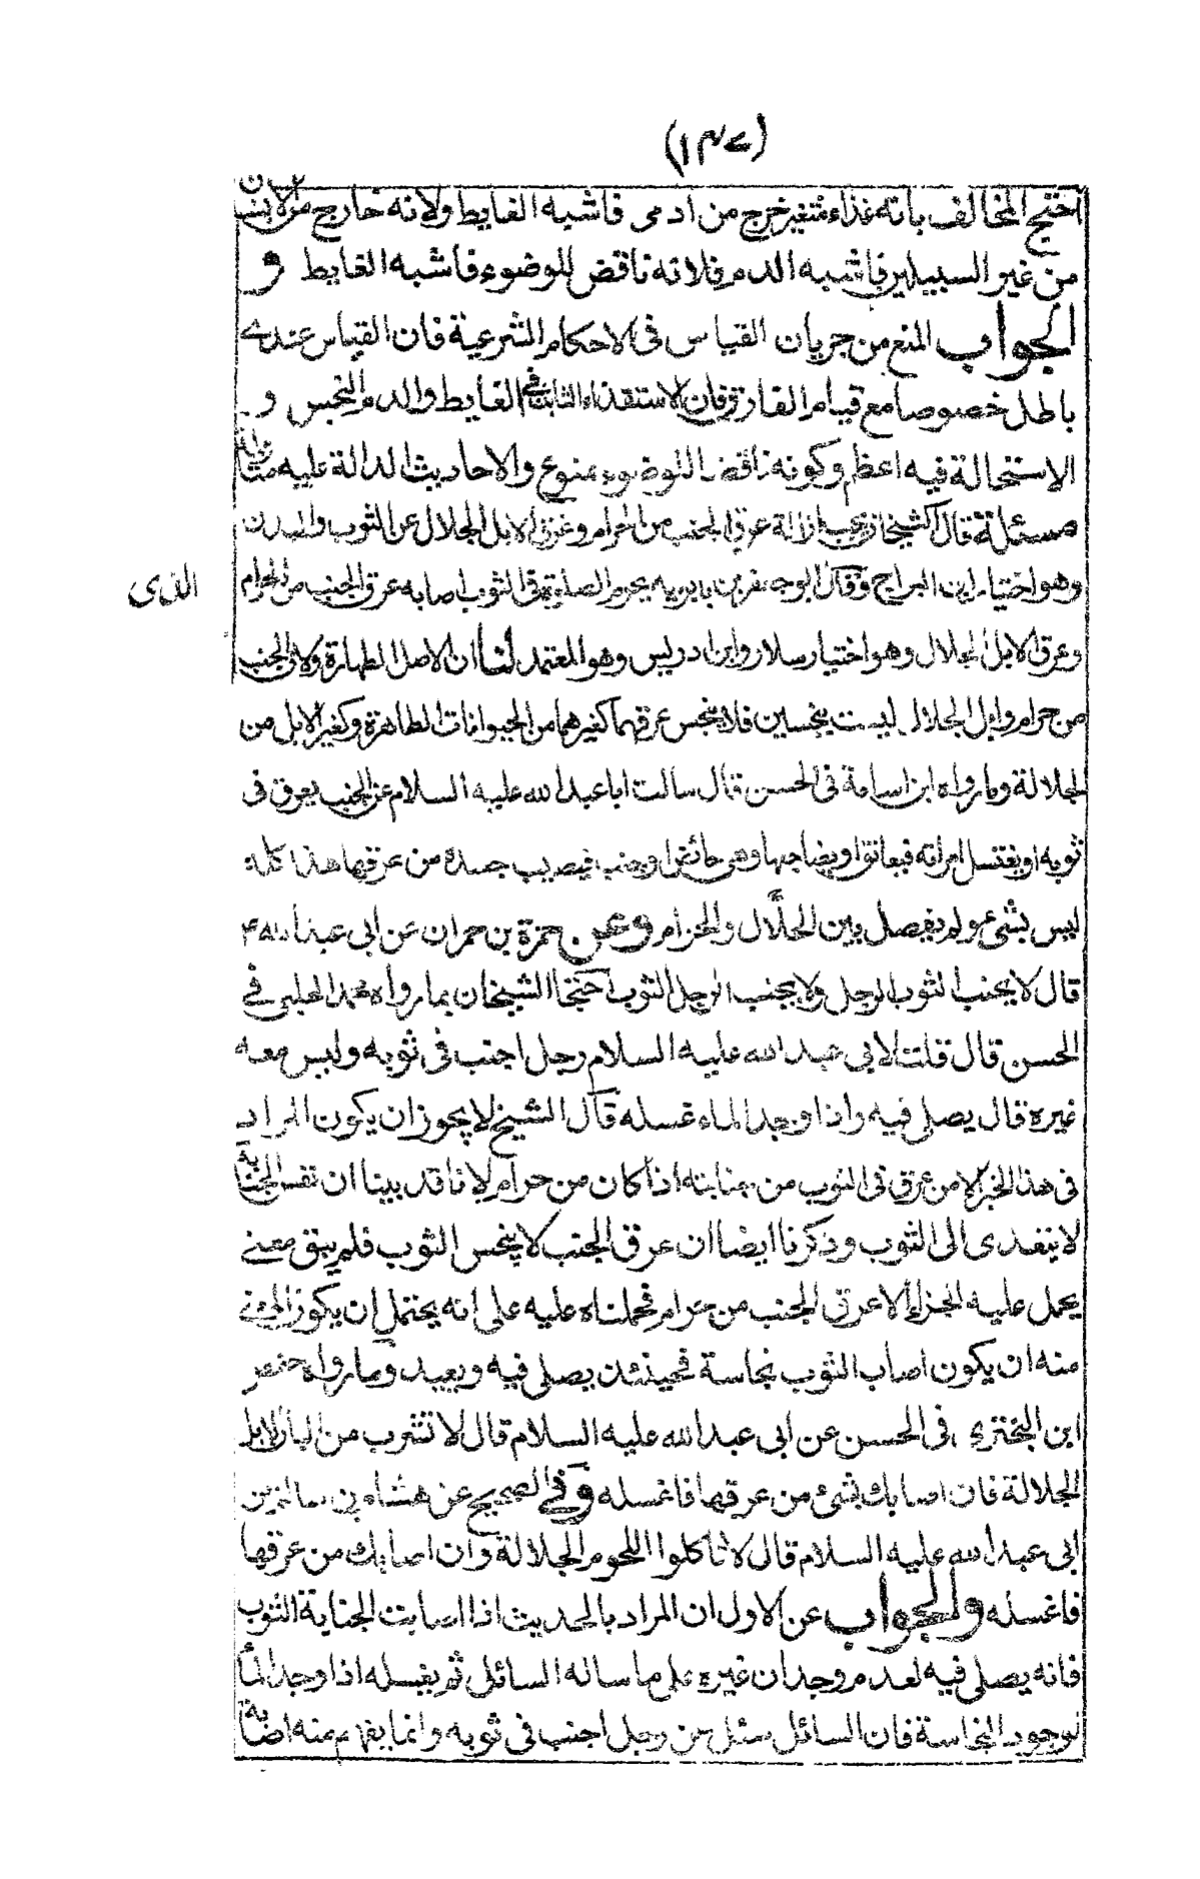 (١٣٧)
احتج المخالف بانه غذاء متغير خرج من ادمى فاشبه الغايط ولانه خارج من الانسان
من غير السبيلين فاشبه الدم فلانه ناقض للوضوء فاشبه الغايط و
الجواب المنع من جريان القياس فى الاحكام الشرعية فان القياس عندنا
باطل خصوصا مع قيام الفارق فان الاستقذاء الثابت فى الغايط والدم النجس و
الاستحالة فيه اعظم وكونه ناقضا للوضوء ممنوع والاحاديث الدالة عليه متأولة
مسئلة قال الشيخان تجب ازالة عرق الجنب من الحرام وعرق الابل الجلال عن الثوب والبدن
وهو اختيار ابن البراج وقال ابو جعفر بن بابويه يحرم الصلوة فى الثوب اصابه عرق الجنب من الحرام
الذى
وعرق الابل الجلال وهو اختيار سلار وابن ادريس وهو المعتمد لنا ان الاصل الطهارة ولان الجنب
من حرام وابل الجلال ليست بنجسين فلا ينجس عرقهما كغيرهما من الحيوانات الطاهرة وكغير الابل من
الجلالة وما رواه ابن اسامة فى الحسن قال سالت ابا عبد الله عليه السلام عن الجنب يعرق فى
ثوبه او يغتسل امراته فيعانق او يضاجعها وهى حائض او جنب فيصيب جسده من عرقها هذا كله
ليس بشئ ولم يفصل بين الحلال والحرام وعن حمزة بن حمران عن ابى عبد الله ع
قال لا يجنب الثوب الرجل ولا يجنب الرجل الثوب احتجا الشيخان بما رواه محمد الحلبى فى
الحسن قال قلت لابى عبد الله عليه السلام رجل اجنب فى ثوبه وليس معه
غيره قال يصلى فيه واذا وجد الماء غسله قال الشيخ لا يجوز ان يكون المراد
فى هذا الخبر الا من عرق فى الثوب من جنابته اذا كان من حرام لانا قد بينا ان نفس الجنابة
لا يتعدى الى الثوب وذكرنا ايضا ان عرق الجنب لا ينجس الثوب فلم يبق معنى
يحمل عليه الخبر الا عرق الجنب من حرام فحملناه عليه على انه يحتمل ان يكون المعنى
منه ان يكون اصاب الثوب نجاسة فحينئذ يصلى فيه ويعيد وما رواه حفص
ابن البخترى فى الحسن عن ابى عبد الله عليه السلام قال لا تشرب من البان الابل
الجلالة فان اصابك بشئ من عرقها فاغسله وفى الصحيح عن هشام بن سالم عن
ابى عبد الله عليه السلام قال لا تاكلوا اللحوم الجلالة وان اصابك من عرقها
فاغسله والجواب عن الاول ان المراد بالحديث اذا اصابت الجنابة الثوب
فانه يصلى فيه لعدم وجدان غيره على ما ساله السائل ثم يغسله اذا وجد الماء
لوجود النجاسة فان السائل سئل عن رجل اجنب فى ثوبه وانما يفهم منه اصابة